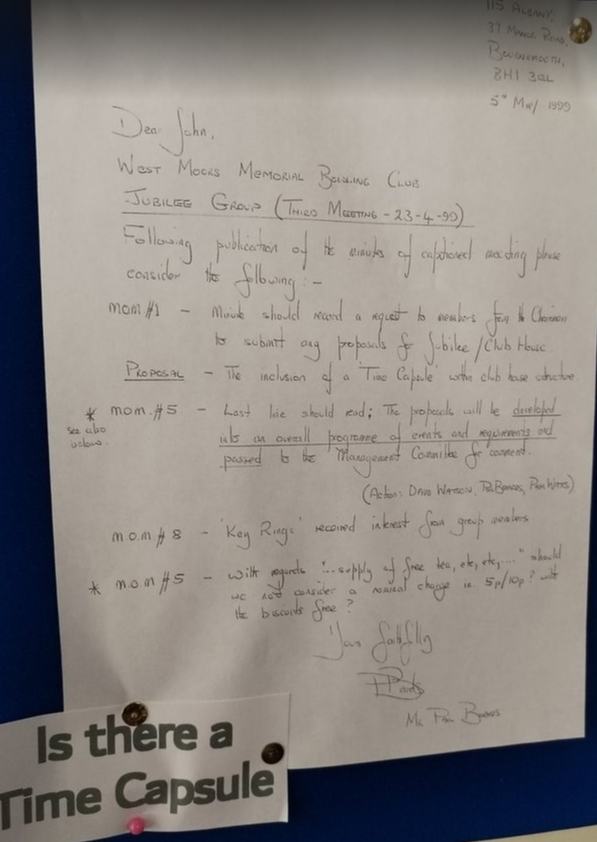 115 ALBANY,
37 MANOR ROAD,
BOURNEMOUTH,
BH1 3QL
5th May 1999
Dear John,
WEST MOORS MEMORIAL BOWLING CLUB
JUBILEE GROUP (THIRD MEETING - 23-4-99)
Following publication of the minutes of captioned meeting please
consider the following:-
MOM #1 - Minute should record a request to members from the Chairman
to submit any proposals for Jubilee/Club House
PROPOSAL - The inclusion of a 'Time Capsule' within club house structure.
* MOM.#5 - Last line should read; The proposals will be developed
see also
below.
into an overall programme of events and requirements and
passed to the Management Committee for comment.
(Action: DAVE WATSON,
M.O.M # 8 - 'Key Rings' received interest from group members
* M.O.M #5 - With regards "...supply of free tea, etc, etc,..." should
we not consider a nominal charge ie. 5p/10p? with
the biscuits free?
Yours faithfully
Is there a
Time Capsule